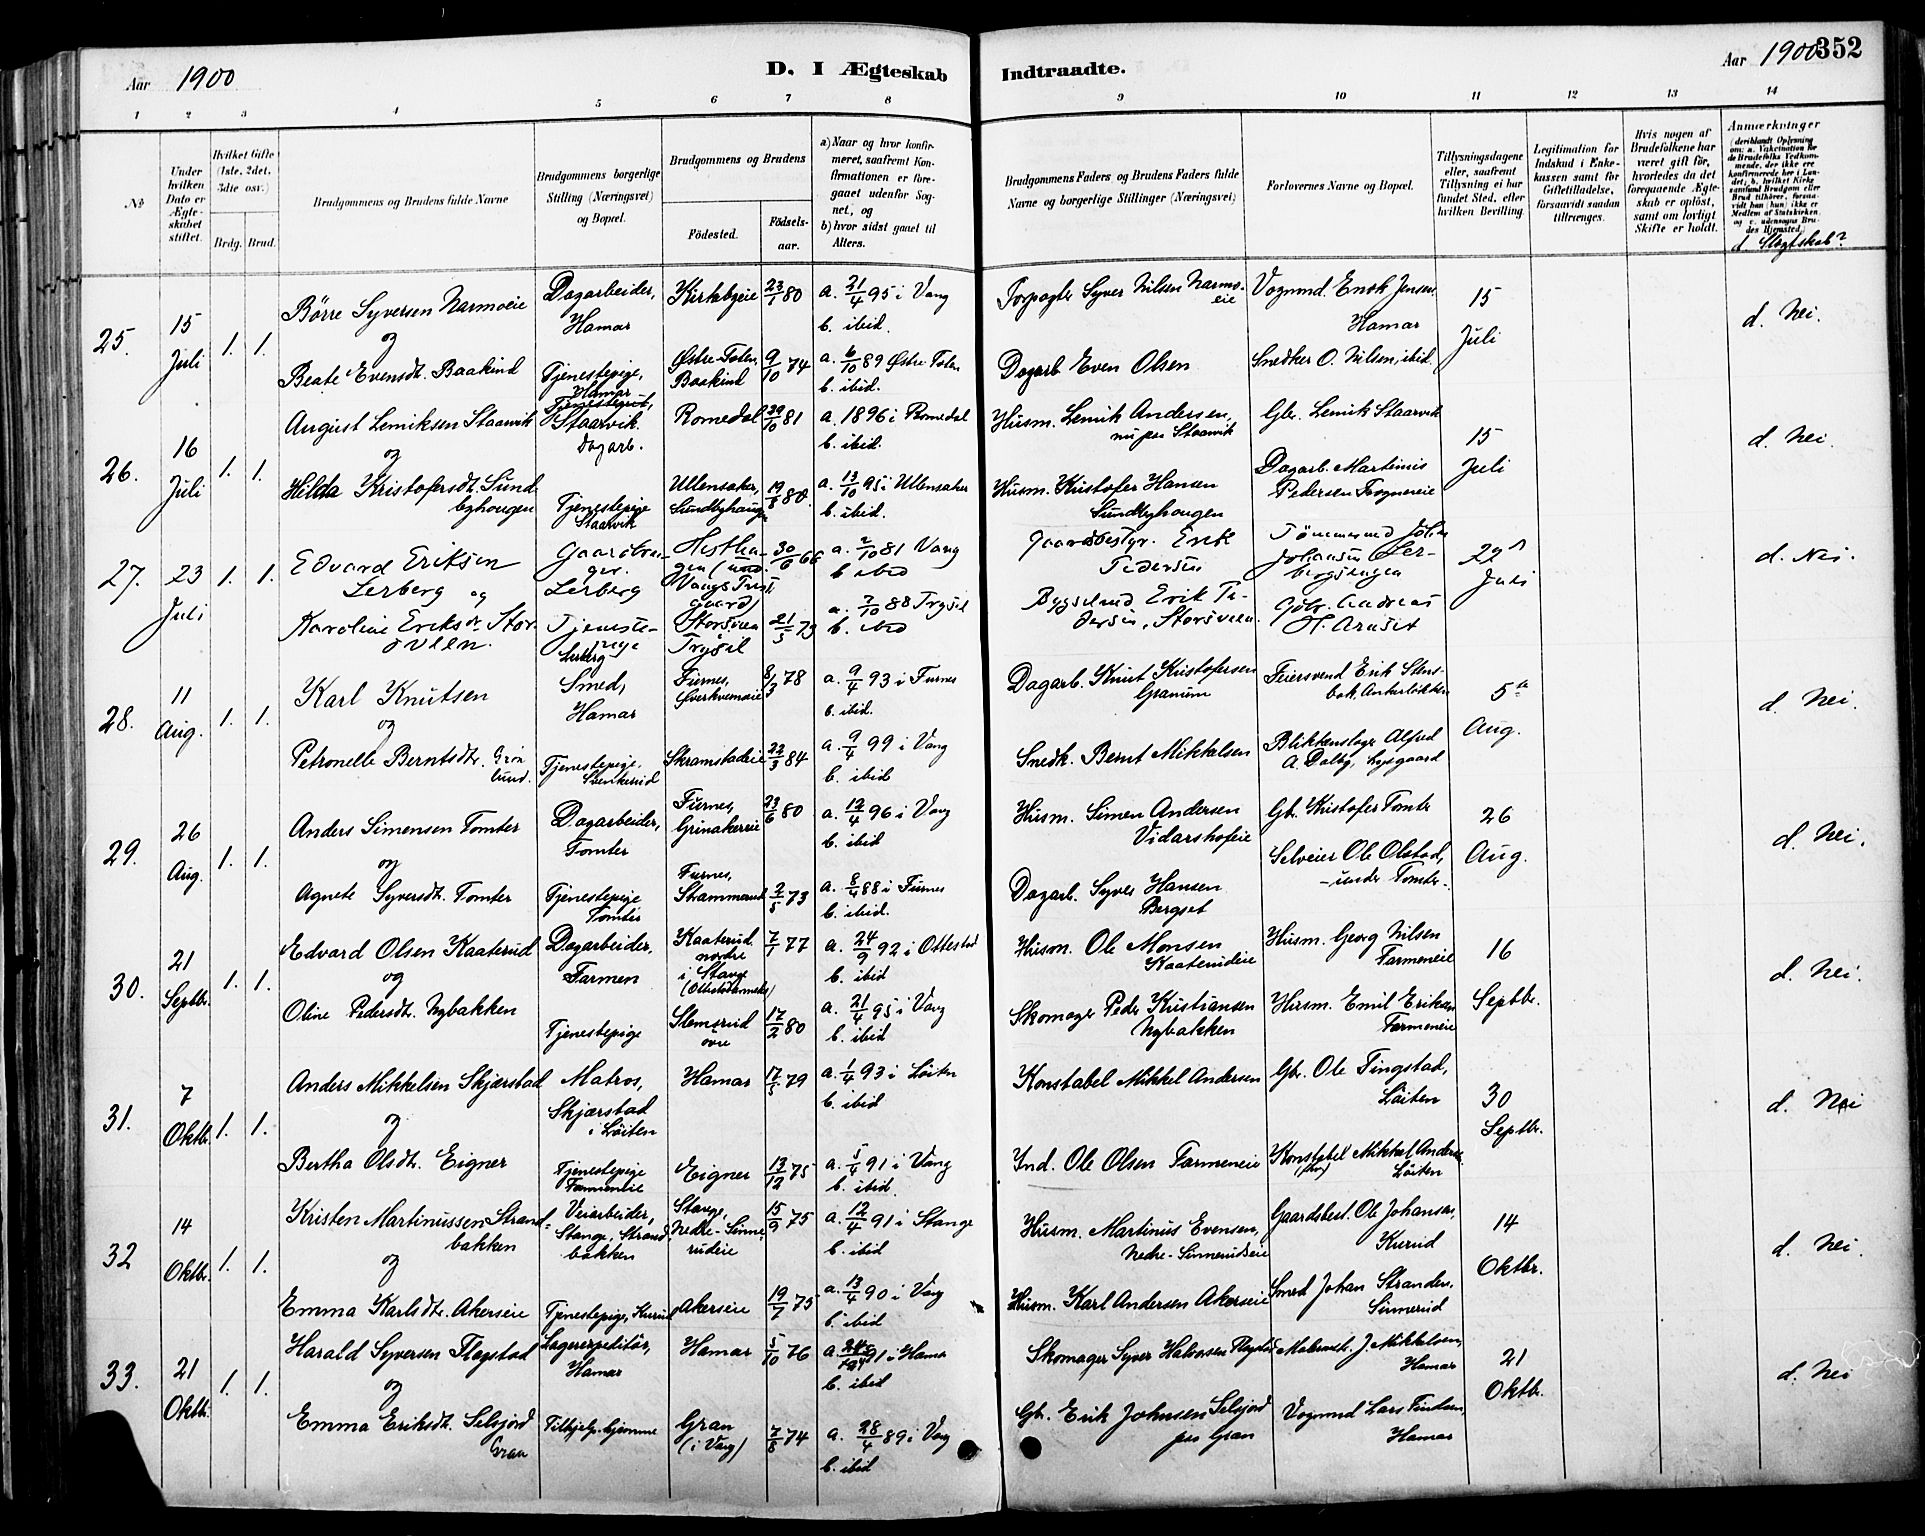 Aar 1900
D. I Ægteskab Indtraadte.
Aar 1900 352
1 2 3 4 5 6 7 8 9 10 11 12 13 14
No
Under hvilken Dato er Ægteskabet stiftet.
Hvilket Gifte (1ste, 2det, 3die osv.)
Brdg. Brud.
Brudgommens og Brudens fulde Navne
Brudgommens borgerlige Stilling (Næringsvei) og Bopæl.
Brudgommens og Brudens
Fødested. Fødselsaar.
a) Naar og hvor konfirmeret, saafremt Konfirmationen er foregaaet udenfor Sognet, og
b) hvor sidst gaaet til Alters.
Brudgommens Faders og Brudens Faders fulde Navne og borgerlige Stillinger (Næringsvei)
Forlovernes Navne og Bopæl.
Tillysningsdagene eller, saafremt Tillysning ei har fundet Sted, efter hvilken Bevilling.
Legitimation for Indskud i Enkekassen samt for Giftetilladelse, forsaavidt saadan tiltrænges.
Hvis nogen af Brudefolkene har været gift før, hvorledes da det foregaaende Ægteskab er opløst, samt om lovligt Skifte er holdt.
Anmærkninger (deriblandt Oplysning om: a. Vaccination for de Brudefolks Vedkommende, der ikke ere konfirmerede her i Landet; b. hvilket Kirkesamfund Brudgom eller Brud tilhører, forsaavidt han (hun) ikke er Medlem af Statskirken, og c. udensogns Brudes Hjemsted.)
d. Slægtskab?
25. 15 Juli 1. 1.
Børre Syversen Narmoeie
og
Beate Evensdt. Baakind
Dagarbeider, Hamar
Tjenestepige, Hamar
Kirkebyeie 23/1 80 a. 21/4 95 i Vang b. ibid.
Østre-Toten, Baakind 9/10 74 a. 6/10 89 Østre Toten b. ibid.
Forpagter Syver Nilsen Narmoeie
Dagarb. Even Olsen
Vognmd. Enok Jensen, Hamar
Snedker O. Nilsen, ibid.
15 Juli
d. Nei.
26. 16 Juli 1. 1.
August Lemiksen Staarvik
og
Hilda Kristofersdt. Sundbyhaugen
Staarvik Dagarb.
Tjenestepige Staarvik
Romedal 29/10 81 a. 1896 i Romedal b. ibid.
Ullensaker, Sundbyhaugen 19/8 80. a. 13/10 95 i Ullensaker b. ibid.
Husm. Lemik Andersen, nu paa Staarvik
Husm. Kristofer Hansen Sundbyhaugen
Gbr. Lemik Staarvik
Dagarb. Martinus Pedersen Frognereie
15 Juli
d. Nei.
27. 23 Juli 1. 1.
Edvard Eriksen Lerberg og
Karoline Eriksdt. Storsveen.
Gaardbruger. Lerberg
Tjenestepige Lerberg
Hesthagen (under Vangs Prestgaard) 30/6 66 a. 2/10 81 Vang b. ibid
Storsveen Trysil 21/5 73 a. 7/10 88 Trysil b. ibid
Gaardbestyr. Erik Pedersen
Bygselmd Erik Pedersen, Storsveen.
Tømmermd John Johansen Lerbergsengen
Gbr. Andreas H. Arnset
22 Juli
d. Nei.
28. 11 Aug. 1. 1.
Karl Knutsen
og
Petronelle Berntsdt. Grønlund.
Smed, Hamar
Tjenestepige. Stenkerud
Furnes, Øverkverneie 8/3 78 a. 9/4 93 i Furnes b. ibid.
Skramstadeie 22/3 84 a. 9/4 99 i Vang b. ibid
Dagarb. Knut Kristofersen Granum
Snedk. Bernt Mikkelsen
Feiersvend Erik Stensbak, Ankerløkken
Blikkenslager Alfred A. Dalby, Lysgaard
5te Aug.
d. Nei.
29. 26 Aug. 1. 1.
Anders Simensen Tomter
og
Agnete Syversdt. Tomter
Dagarbeider, Tomter
Tjenestepige Tomter
Furnes, Grinakereie 23/6 80 a. 12/4 96 i Vang b. ibid
Furnes, Strammerud 2/5 73 a. 8/4 88 i Furnes b. ibid.
Husm. Simen Andersen Vidarshofeie
Dagarb. Syver Hansen Bergset
Gb. Kristofer Tomter
Selveier Ole Olstad, under Tomter.
26 Aug.
d. Nei.
30. 21 Septbr. 1. 1.
Edvard Olsen Kaaterud
og
Oline Pedersdt. Nybakken
Dagarbeider. Farmen
Tjenestepige
Kaaterud nordre i Stange 7/1 77 a. 24/9 92 i Ottestad b. ibid
Stemsrud øvre 17/2 80 a. 21/4 95 i Vang b. ibid
Husm. Ole Monsen Kaaterudeie
Skomager Peder Kristiansen Nybakken
Husm. Georg Nilsen Farmeneie
Husm. Emil Eriksen Farmeneie
16 Septbr.
d. Nei.
31. 7 Oktbr. 1. 1.
Anders Mikkelsen Skjærstad
og
Bertha Olsdt. Eigner
Matros, Skjærstad i Løiten
Tjenestepige Farmeneie
Hamar 17/5 79 a. 1/4 93 i Løiten b. ibid
Eigner 13/12 75 a. 5/4 91 i Vang b. ibid.
Konstabel Mikkel Andersen
Ind. Ole Olsen Farmeneie
Gbr. Ole Tingstad, Løiten
Konstabel Mikkel Andersen Løiten
30 Septbr.
d. Nei
32 14 Oktbr. 1. 1.
Kristen Martinussen Strandbakken
og
Emma Karlsdt. Akerseie
Veiarbeider, Stange, Strandbakken
Tjenestepige, Kurud
Stange, Nedre-Sinnerudeie 15/9 75 a. 12/4 91 i Stange b. ibid
Akerseie 19/7 75 a. 13/4 90 i Vang b. ibid
Husm. Martinus Evensen, Nedre-Sinnerudeie
Husm. Karl Andersen Akerseie
Gaardsbest. Ole Johansen, Kurud
Smed Johan Stranden, Sinnerud
14 Oktbr.
d. Nei.
33. 21 Oktbr. 1. 1.
Harald Syversen Flagstad
og
Emma Eriksdt. Selsjord Gran
Lagerexpeditør, Hamar
Tilhjelp. hjemme
Hamar 5/10 76 a. 91 i Hamar b. ibid
Gran (i Vang) 7/8 74 a. 28/4 89 i Vang b. ibid
Skomager Syver Halvorsen Flagstad
Gbr. Erik Johnsen Selsjord paa Gran
Malermst. J. Mikkelsen, Hamar
Vognmd Lars Findsen, Hamar
21 Oktbr.
d. Nei